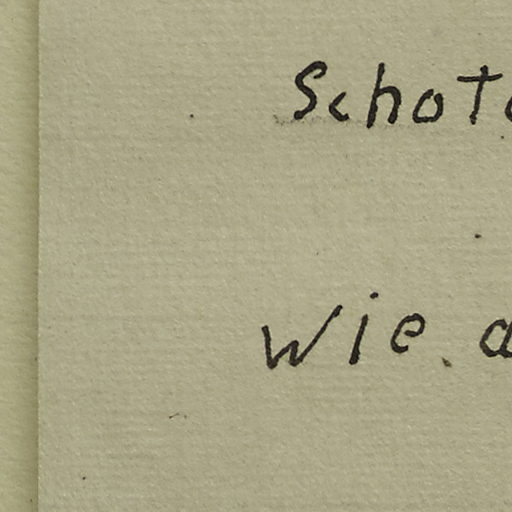 Schot
Wie